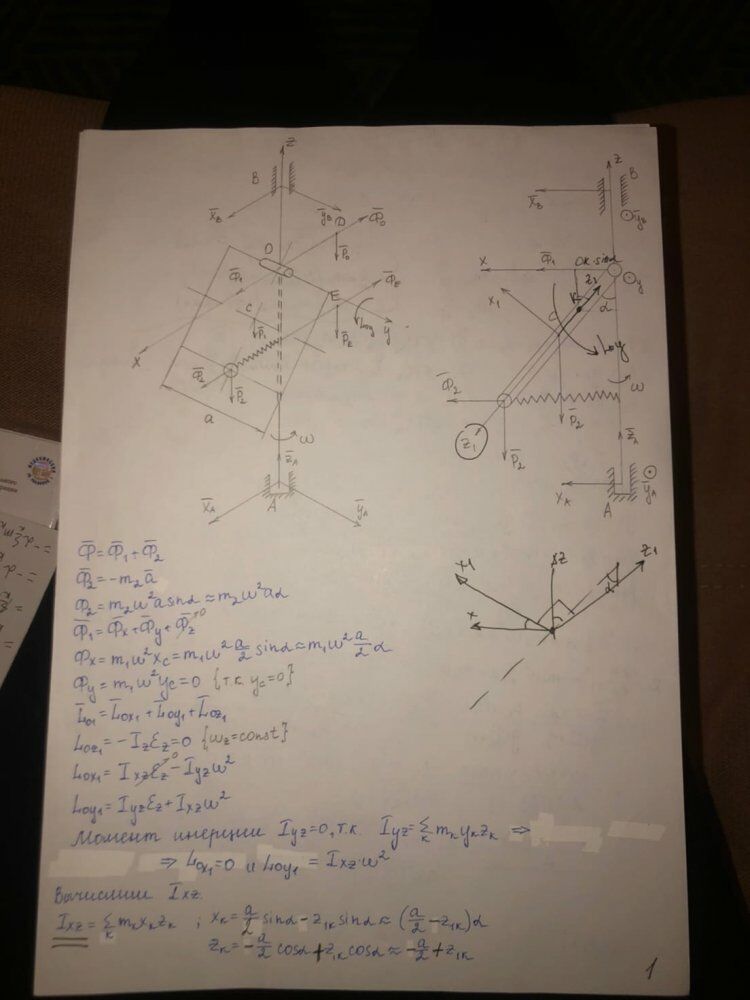 z
B
X̄_B
ȳ_B
D
Φ̄_D
P̄_D
O
Φ̄_1
E
Φ̄_E
C
P̄_1
L_oy
P̄_E
y
x
Φ̄_2
P̄_2
a
ω
z̄_A
X̄_A
A
ȳ_A
z
B
x̄_B
ȳ_B
x
Φ̄_1
OK·sinα
y
x_1
K
z_k
α
C
L_oy
Φ̄_2
ω
P̄_2
z_1
P̄_2
z̄_A
X_A
ȳ_A
A
x_1
z
z_1
x
α
Φ̄=Φ̄_1+Φ̄_2
Φ̄_2=-m_2ā
Φ_2=m_2ω²a sinα≈m_2ω²aα
Φ̄_1=Φ̄_x+Φ̄_y+Φ̄_z→0
Φ_x=m_1ω²x_C=m_1ω² a/2 sinα≈m_1ω² a/2 α
Φ_y=m_1ω²y_C=0 {т.к. y_C=0}
L̄_O1=L̄_ox_1+L̄_oy_1+L̄_oz_1
L_oz_1=-I_zε_z=0 {ω_z=const}
L_ox_1=I_xzε_z→0-I_yzω²
L_oy_1=I_yzε_z+I_xzω²
Момент инерции I_yz=0, т.к. I_yz=Σ_k m_k y_k z_k ⇒
⇒ L_ox_1=0 и L_oy_1=I_xz·ω²
Вычислим I_xz.
I_xz=Σ_k m_k x_k z_k ; x_k=a/2 sinα-z_1k sinα≈(a/2-z_1k)α
z_k=-a/2 cosα+z_1k cosα≈-a/2+z_1k
1